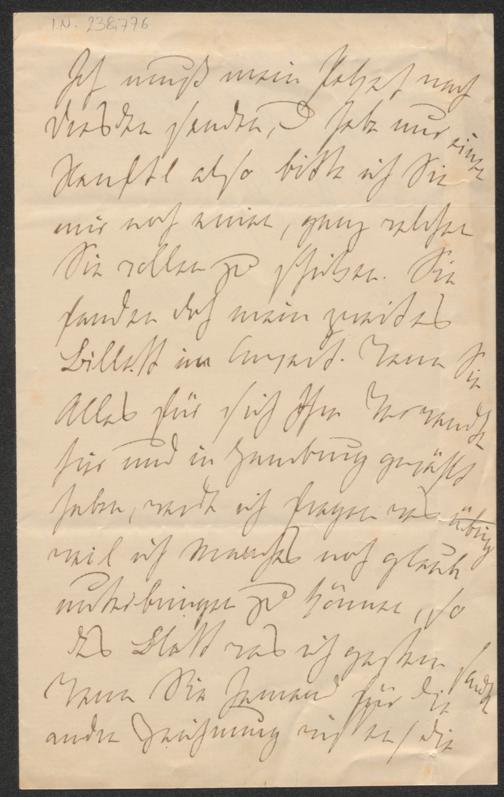 I.N. 238.776
Ich muß mein Paket nach
Dresden senden, u habe nur eine
also bitte ich Sie
mir noch einen, ganz welchen
Sie wollen zu schicken. Sie
fanden doch mein zweites
Billett im Couvert. Wenn Sie
Alles für sich Ihre Verwandte
hier und in Hamburg gewählt
haben, werde ich fragen was übrig
weil ich Manches noch glaube
unterbringen zu können, so
das Blatt was ich gestern sandte
Wenn Sie Jemand für die
andre Zeichnung wissen / die